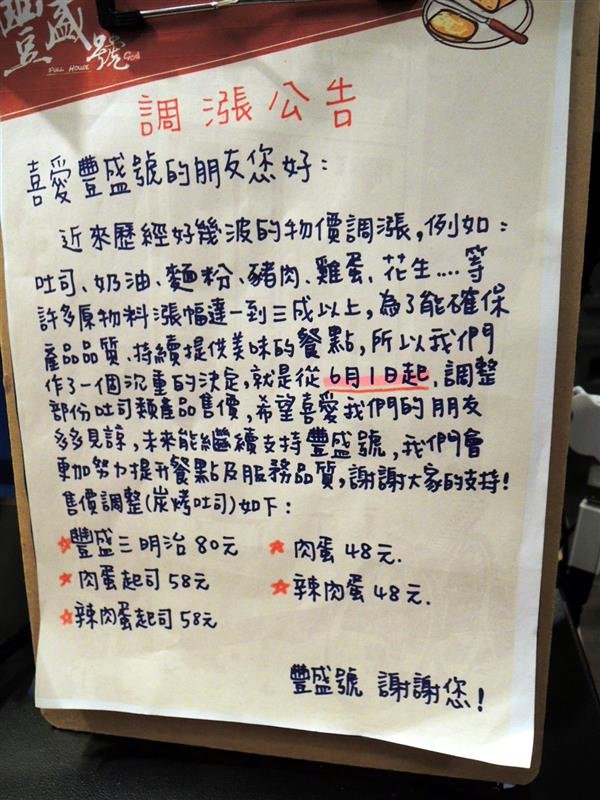 豐盛號
FULL HOUSE
調漲公告
喜愛豐盛號的朋友您好：
近來歷經好幾波的物價調漲，例如：
吐司、奶油、麵粉、豬肉、雞蛋、花生.....等
許多原物料漲幅達一到三成以上，為了能確保
產品品質、持續提供美味的餐點，所以我們
作了一個沉重的決定，就是從6月1日起，調整
部份吐司類產品售價，希望喜愛我們的朋友
多多見諒，未來能繼續支持豐盛號，我們會
更加努力提升餐點及服務品質，謝謝大家的支持！
售價調整(炭烤吐司)如下：
☆豐盛三明治 80元 ☆肉蛋 48元.
☆肉蛋起司 58元 ☆辣肉蛋 48元.
☆辣肉蛋起司 58元
豐盛號 謝謝您！